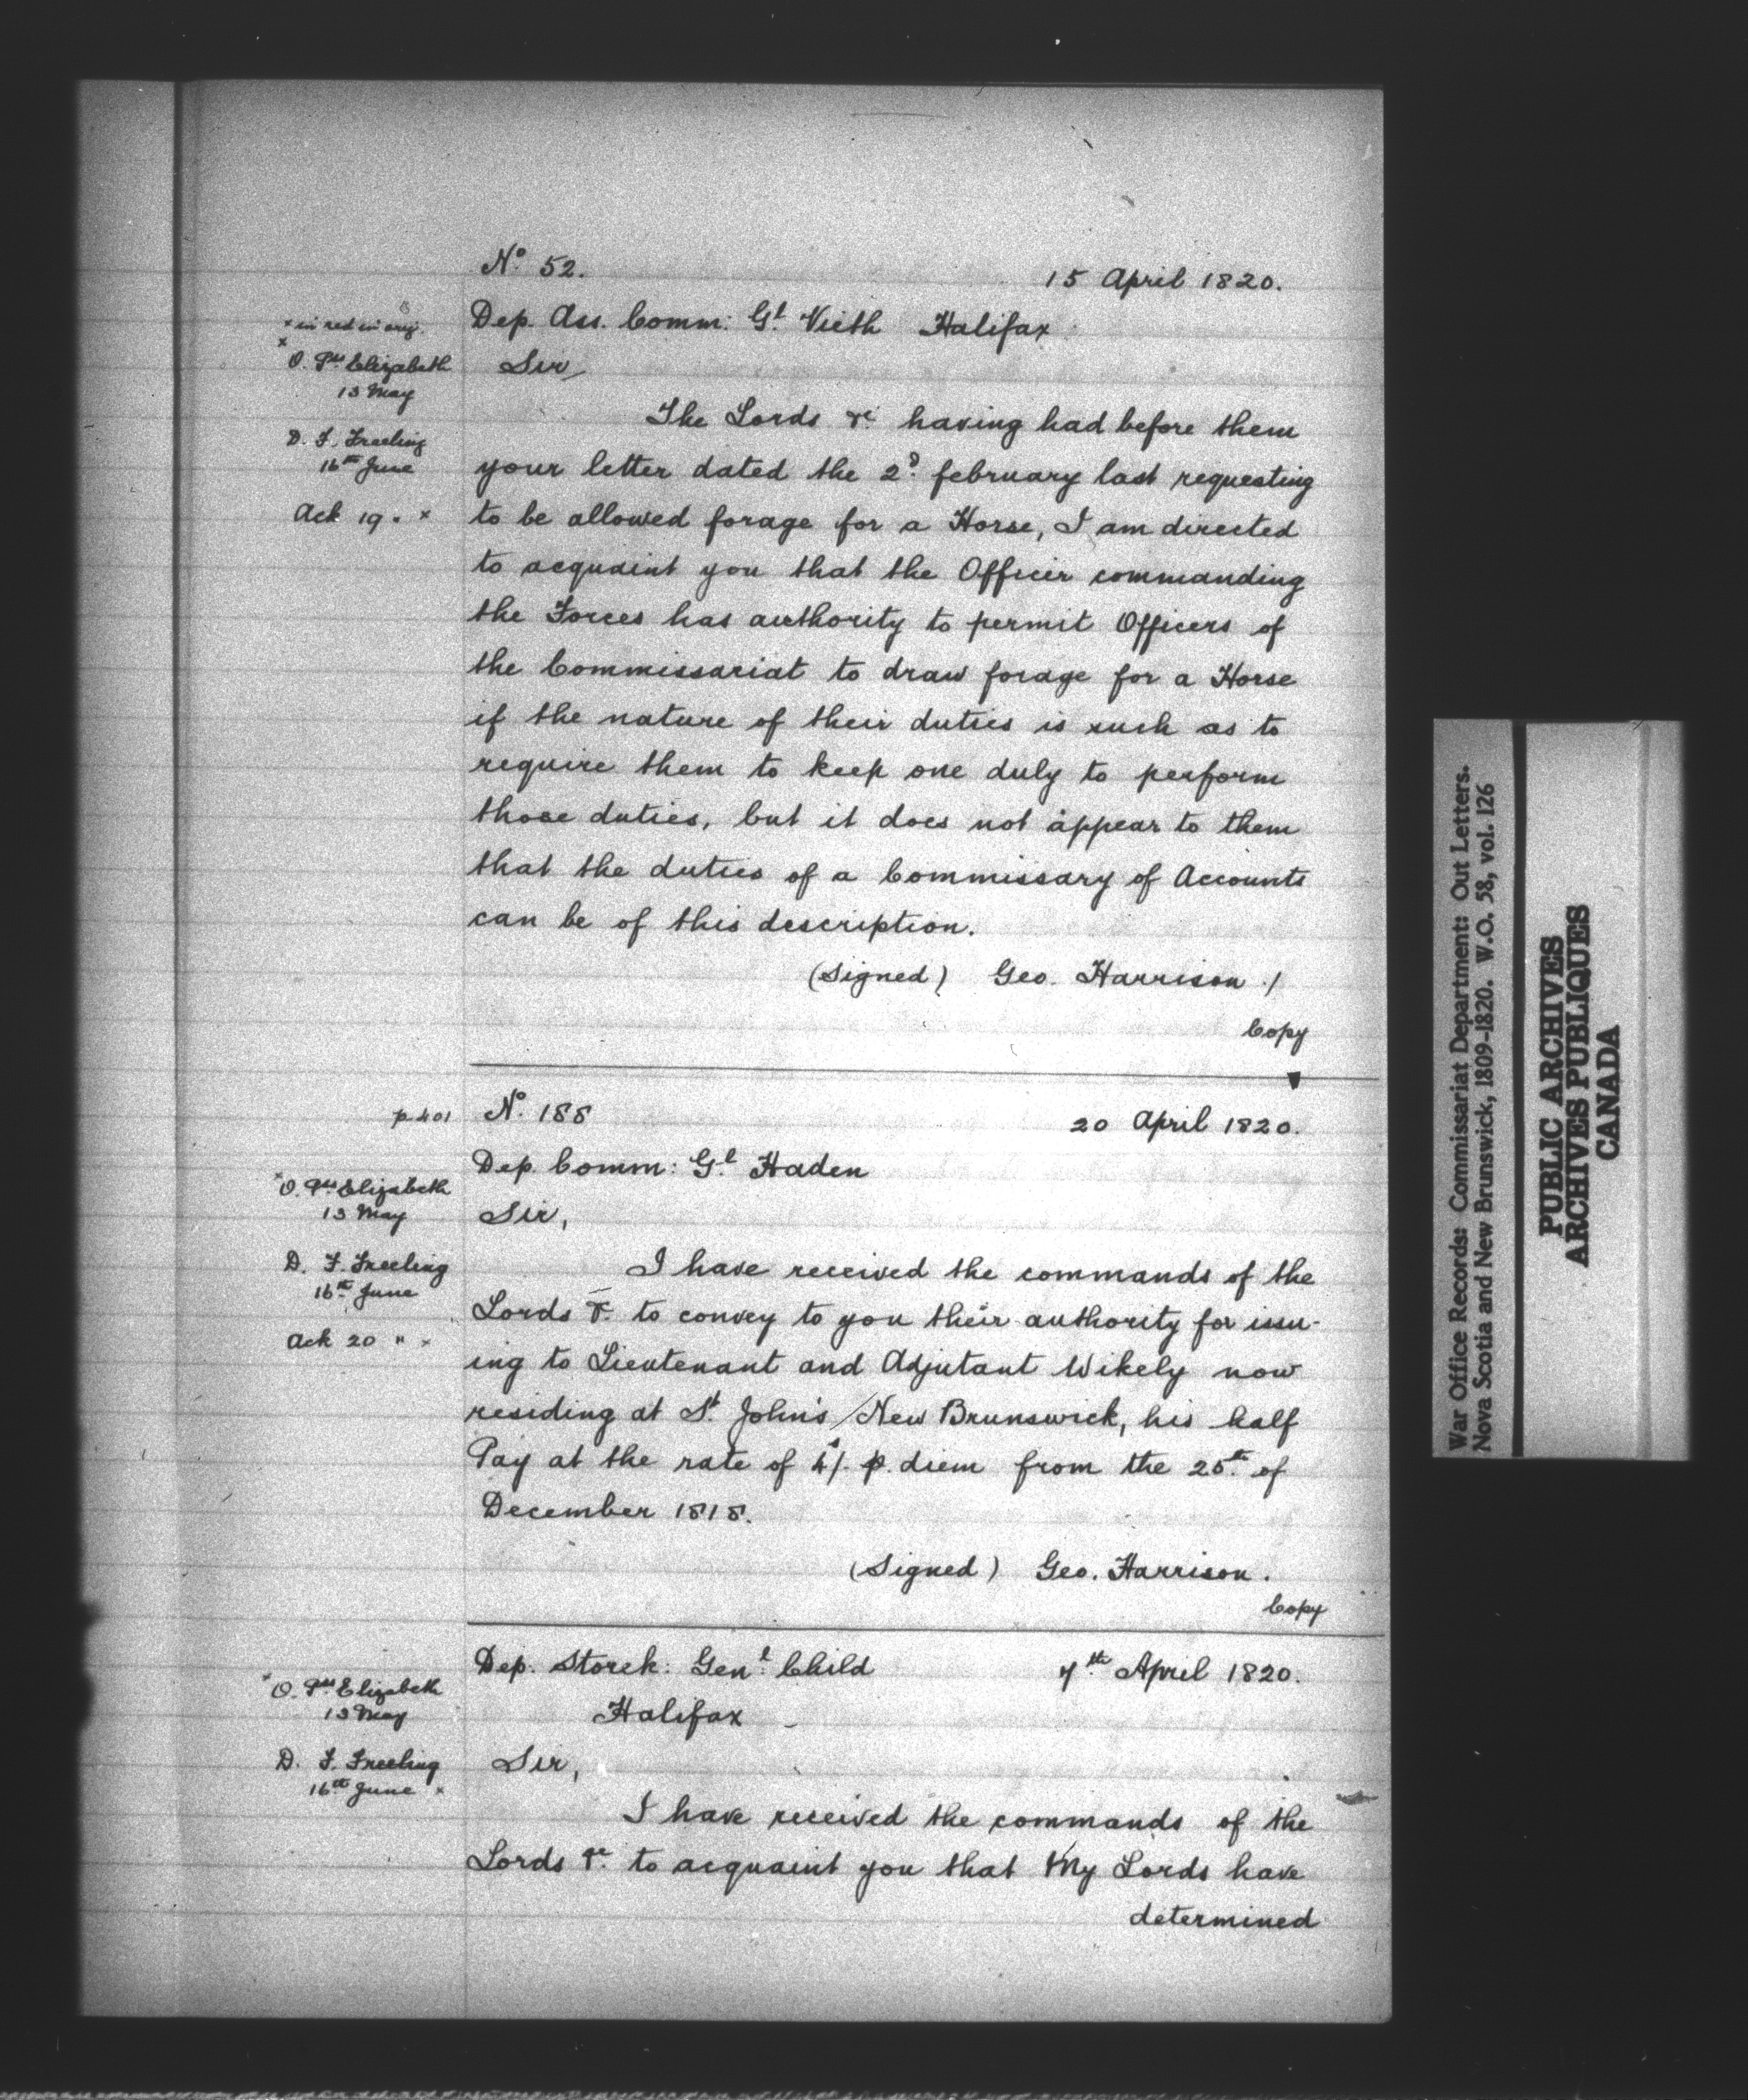 No. 52.
15 April 1820.
Dep. Ass. Comm: Gl. Vieth Halifax
x in red in orig.
x
O. Pss Elizabeth
13 May
D. F. Freeling
16th June
Ack 19. x
Sir,
The Lords &c having had before them
your letter dated the 2d. february last requesting
to be allowed forage for a Horse, I am directed
to acquaint you that the Officer commanding
the Forces has authority to permit Officers of
the Commissariat to draw forage for a Horse
if the nature of their duties is such as to
require them to keep one duly to perform
those duties, but it does not appear to them
that the duties of a Commissary of Accounts
can be of this description.
(Signed) Geo. Harrison /
Copy
p 401
No. 188
20 April 1820.
Dep. Comm: Gl Haden
x O. Pss Elizabeth
13 May
D. F. Freeling
16th June
Ack 20 " x
Sir,
I have received the commands of the
Lords &c. to convey to you their authority for issu-
ing to Lieutenant and Adjutant Wikely now
residing at St. John's New Brunswick, his half
Pay at the rate of 4/. p. diem from the 25th of
December 1818.
(Signed) Geo. Harrison.
Copy
Dep. Storek: Genl. Child
Halifax
April 1820.
x O. Pss Elizabeth
13 May
D. F. Freeling
16th June x
Sir,
I have received the commands of the
Lords &c. to acquaint you that My Lords have
determined
War Office Records: Commissariat Department: Out Letters.
Nova Scotia and New Brunswick, 1809-1820. W.O. 58, vol. 126
PUBLIC ARCHIVES
ARCHIVES PUBLIQUES
CANADA